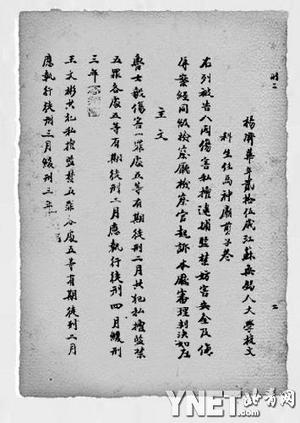 刑二
楊濟華年貳拾伍歲江蘇無錫人大學校文
科生住馬神廟剪子巷
右列被告人因傷害私擅逮捕監禁妨害安全及傷
害案經同級檢察廳檢察官起訴本廳審理判決如左
主文
魯士毅傷害一罪處五等有期徒刑二月共犯私擅監禁
五罪各處五等有期徒刑二月應執行徒刑四月緩刑
三年
王文彬共犯私擅監禁五罪各處五等有期徒刑二月
應執行徒刑三月緩刑三年
二
YNET.com
北青网